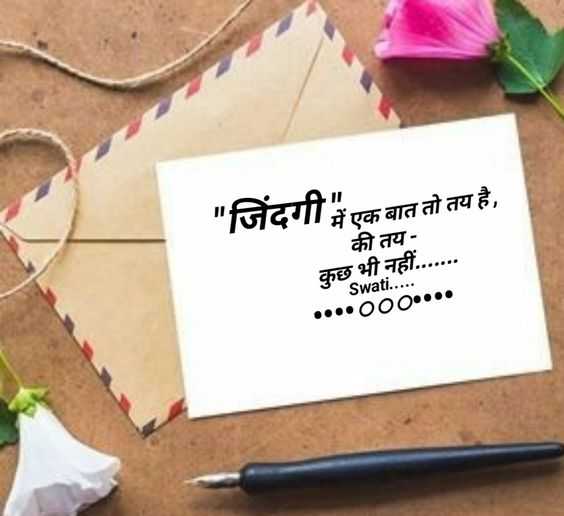 "जिंदगी" में एक बात तो तय है,
की तय -
कुछ भी नहीं.......
Swati.....
••••○○○••••